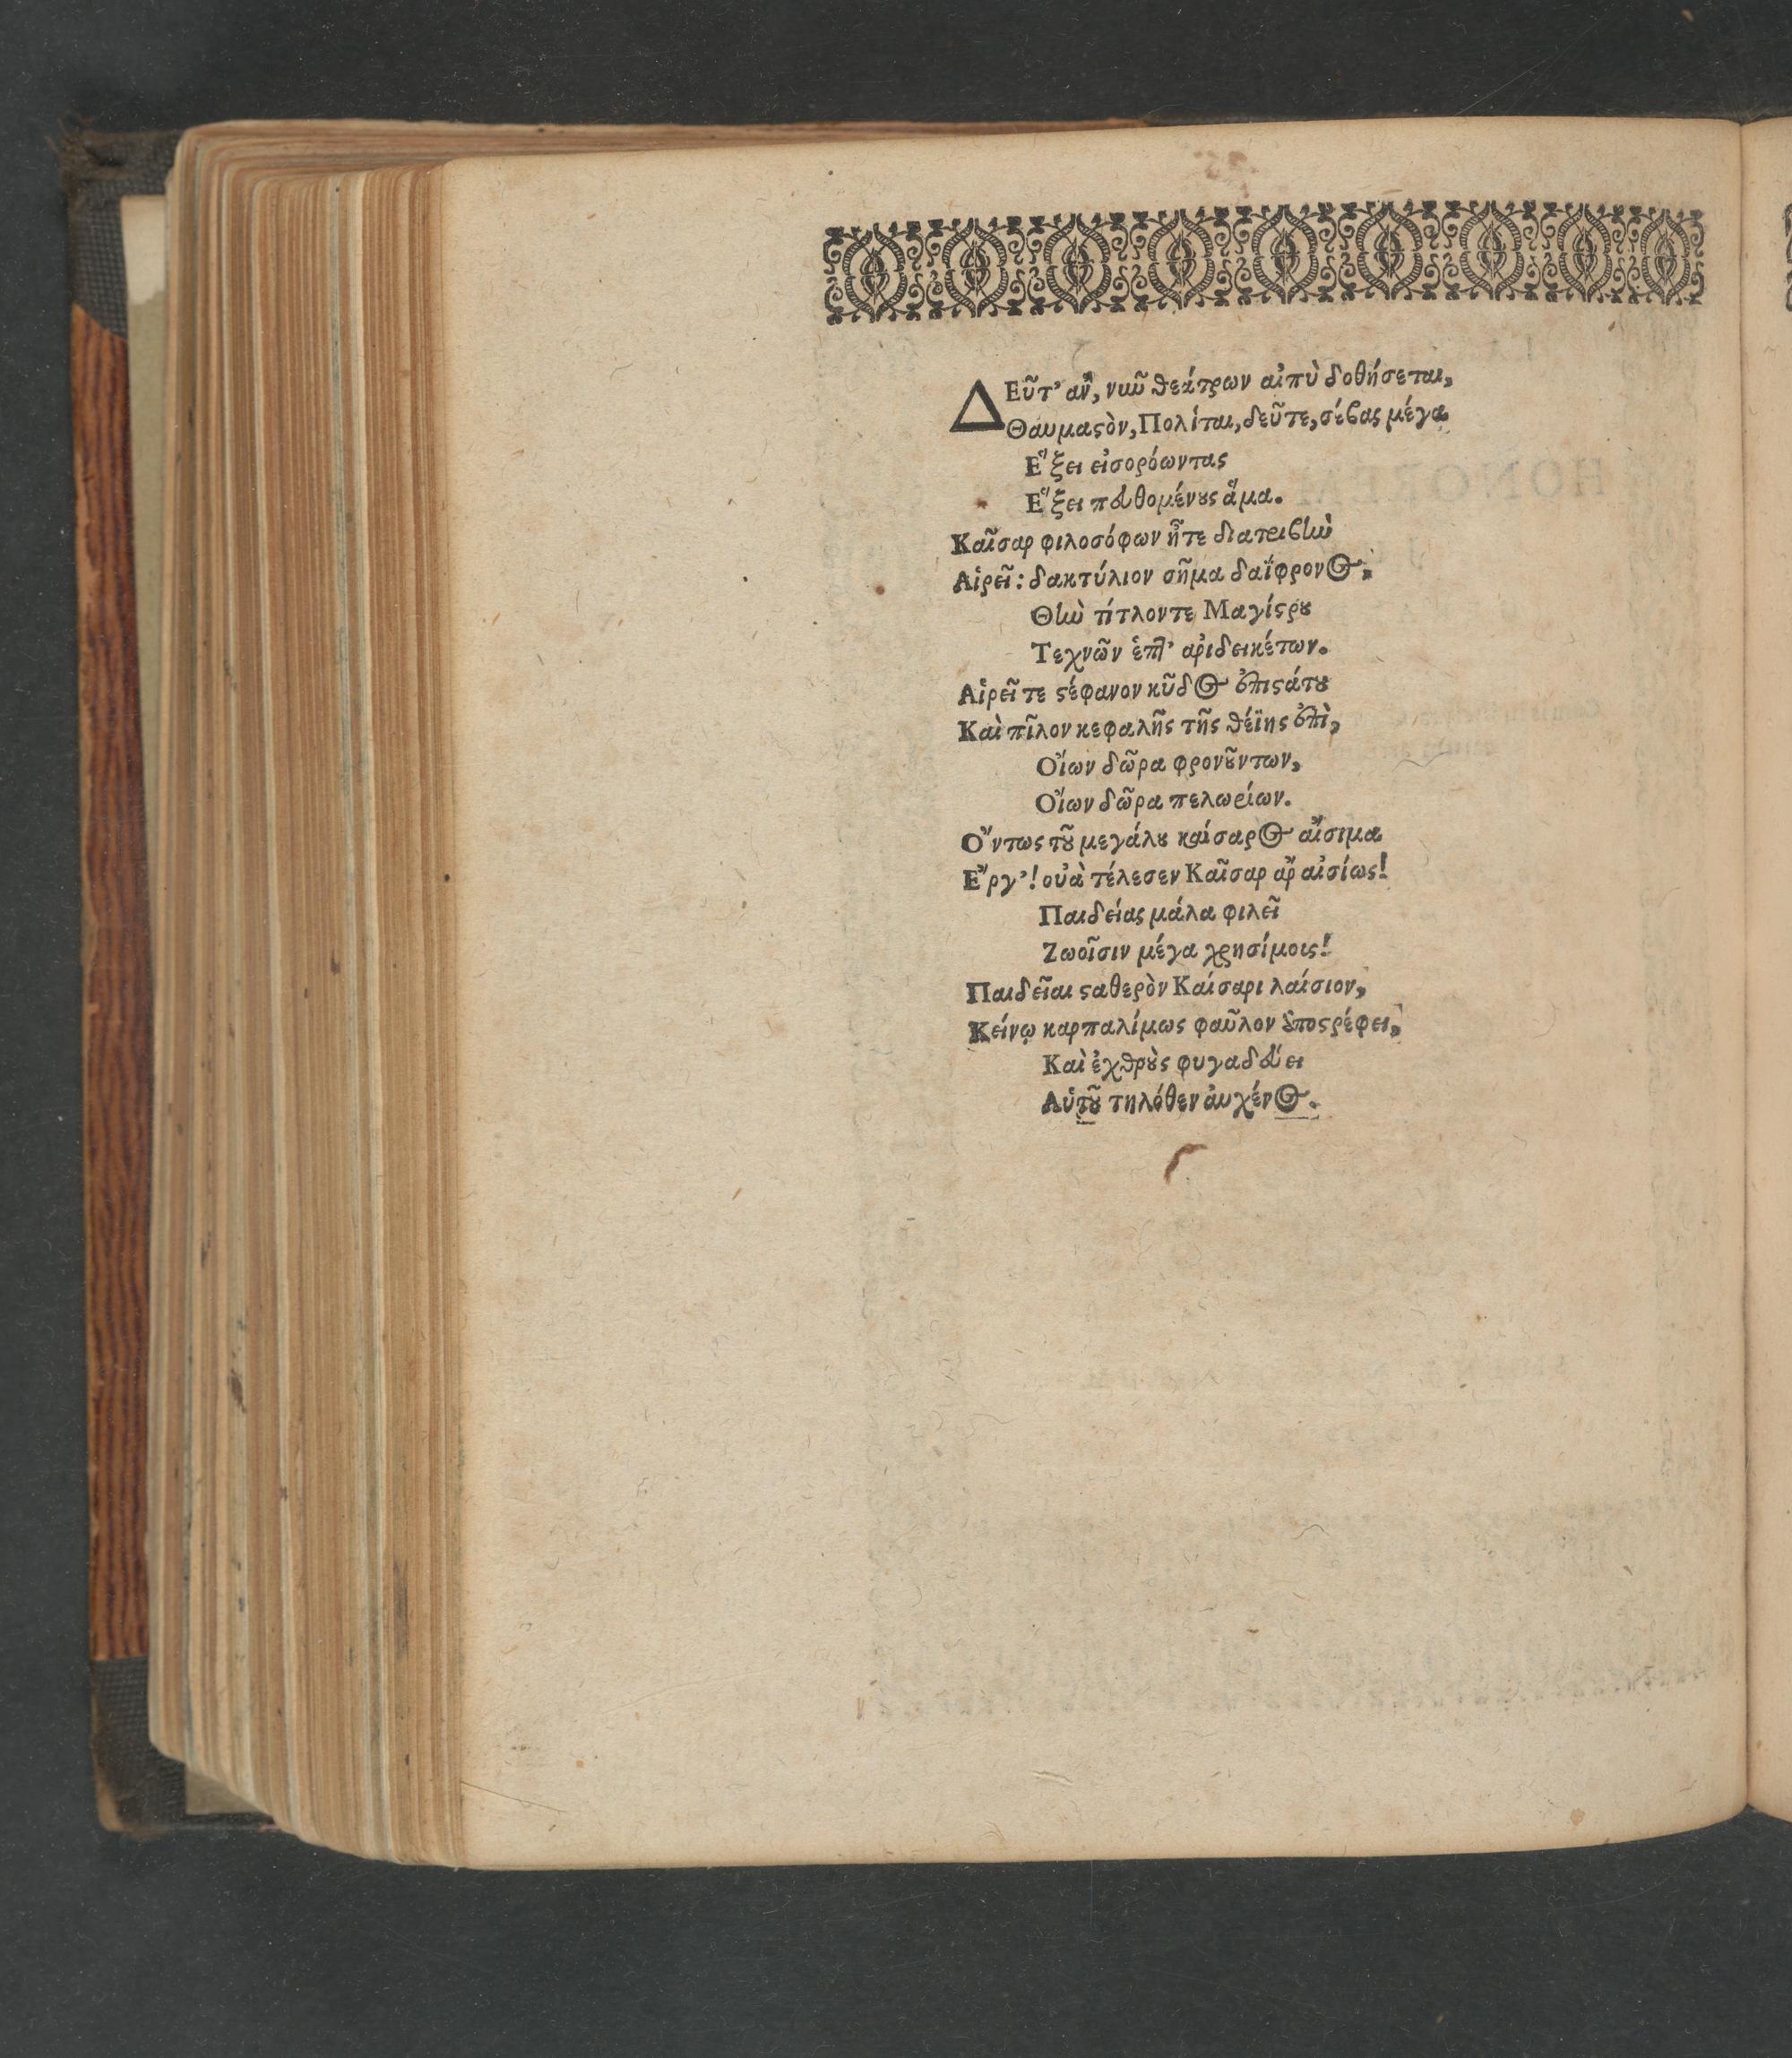 ΔΕῦτ' ἂν, νιῶ θεάτρων αἰπὺ δοθήσεται,
Θαυμαϛὸν, Πολίται, δεῦτε, σέβας μέγα
Ἕξει εἰσορόωντας
Ἕξει πευθομένȣς ἅμα.
Καῖσαρ φιλοσόφων ἦτε διατριβίω
Αἱρεῖ: δακτύλιον σῆμα δαΐφρονος,
Θίω τίτλοντε Μαγίϛρȣ
Τεχνῶν ἑπτ' ἀριδεικέτων.
Αἱρεῖ τε ϛέφανον κῦδος ἐπιϛάτȣ
Καὶ πῖλον κεφαλῆς τῆς θέϊης ἐπὶ,
Οἵων δῶρα φρονȣ͂ντων,
Οἵων δῶρα πελωρίων.
Ὄντως τȣ͂ μεγάλȣ καίσαρος αἴσιμα
Ἔργ'! οὐὰ τέλεσεν Καῖσαρ ἂρ αἰσίως!
Παιδείας μάλα φιλεῖ
Ζωοῖσιν μέγα χρησίμοις!
Παιδεῖαι ϛαθερὸν Καίσαρι λαίσιον,
Κείνῳ καρπαλίμως φαῦλον ἀποϛρέφει,
Καὶ ἐχθρȣ̀ς φυγαδεύει
Αὑτȣ͂ τηλόθεν ἀυχένος.